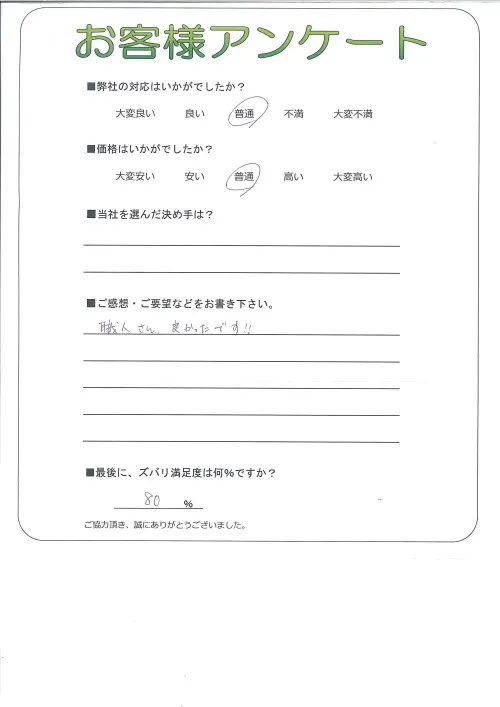 お客様アンケート
■弊社の対応はいかがでしたか？
大変良い 良い 普通 不満 大変不満
■価格はいかがでしたか？
大変安い 安い 普通 高い 大変高い
■当社を選んだ決め手は？
■ご感想・ご要望などをお書き下さい。
職人さん、良かったです!!
■最後に、ズバリ満足度は何％ですか？
80 %
ご協力頂き、誠にありがとうございました。